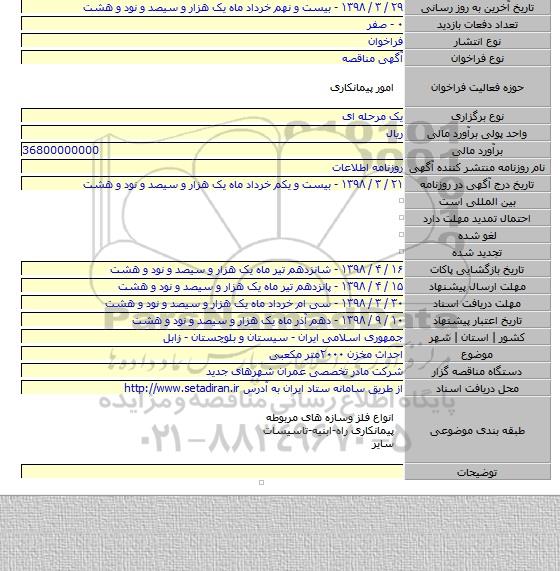 تاریخ آخرین به روز رسانی ۲۹ / ۳ / ۱۳۹۸ - بیست و نهم خرداد ماه یک هزار و سیصد و نود و هشت
تعداد دفعات بازدید ۰ - صفر
نوع انتشار فراخوان
نوع فراخوان آگهی مناقصه
حوزه فعالیت فراخوان امور پیمانکاری
نوع برگزاری یک مرحله ای
واحد پولی برآورد مالی ریال
برآورد مالی 36800000000
نام روزنامه منتشر کننده آگهی روزنامه اطلاعات
تاریخ درج آگهی در روزنامه ۲۱ / ۳ / ۱۳۹۸ - بیست و یکم خرداد ماه یک هزار و سیصد و نود و هشت
بین المللی است
احتمال تمدید مهلت دارد
لغو شده
تجدید شده
تاریخ بازگشایی پاکات ۱۶ / ۴ / ۱۳۹۸ - شانزدهم تیر ماه یک هزار و سیصد و نود و هشت
مهلت ارسال پیشنهاد ۱۵ / ۴ / ۱۳۹۸ - پانزدهم تیر ماه یک هزار و سیصد و نود و هشت
مهلت دریافت اسناد ۳۰ / ۳ / ۱۳۹۸ - سی ام خرداد ماه یک هزار و سیصد و نود و هشت
تاریخ اعتبار پیشنهاد ۱۰ / ۹ / ۱۳۹۸ - دهم آذر ماه یک هزار و سیصد و نود و هشت
کشور | استان | شهر جمهوری اسلامی ایران - سیستان و بلوچستان - زابل
موضوع احداث مخزن ۲۰۰۰متر مکعبی
دستگاه مناقصه گزار شرکت مادر تخصصی عمران شهرهای جدید
محل دریافت اسناد از طریق سامانه ستاد ایران به آدرس http://www.setadiran.ir
پایگاه اطلاع رسانی مناقصه و مزایده
طبقه بندی موضوعی انواع فلز وسازه های مربوطه
پیمانکاری راه-ابنیه-تاسیسات
سایر
۰۲۱-۸۸۳۴۹۶۷۰-۵
توضیحات